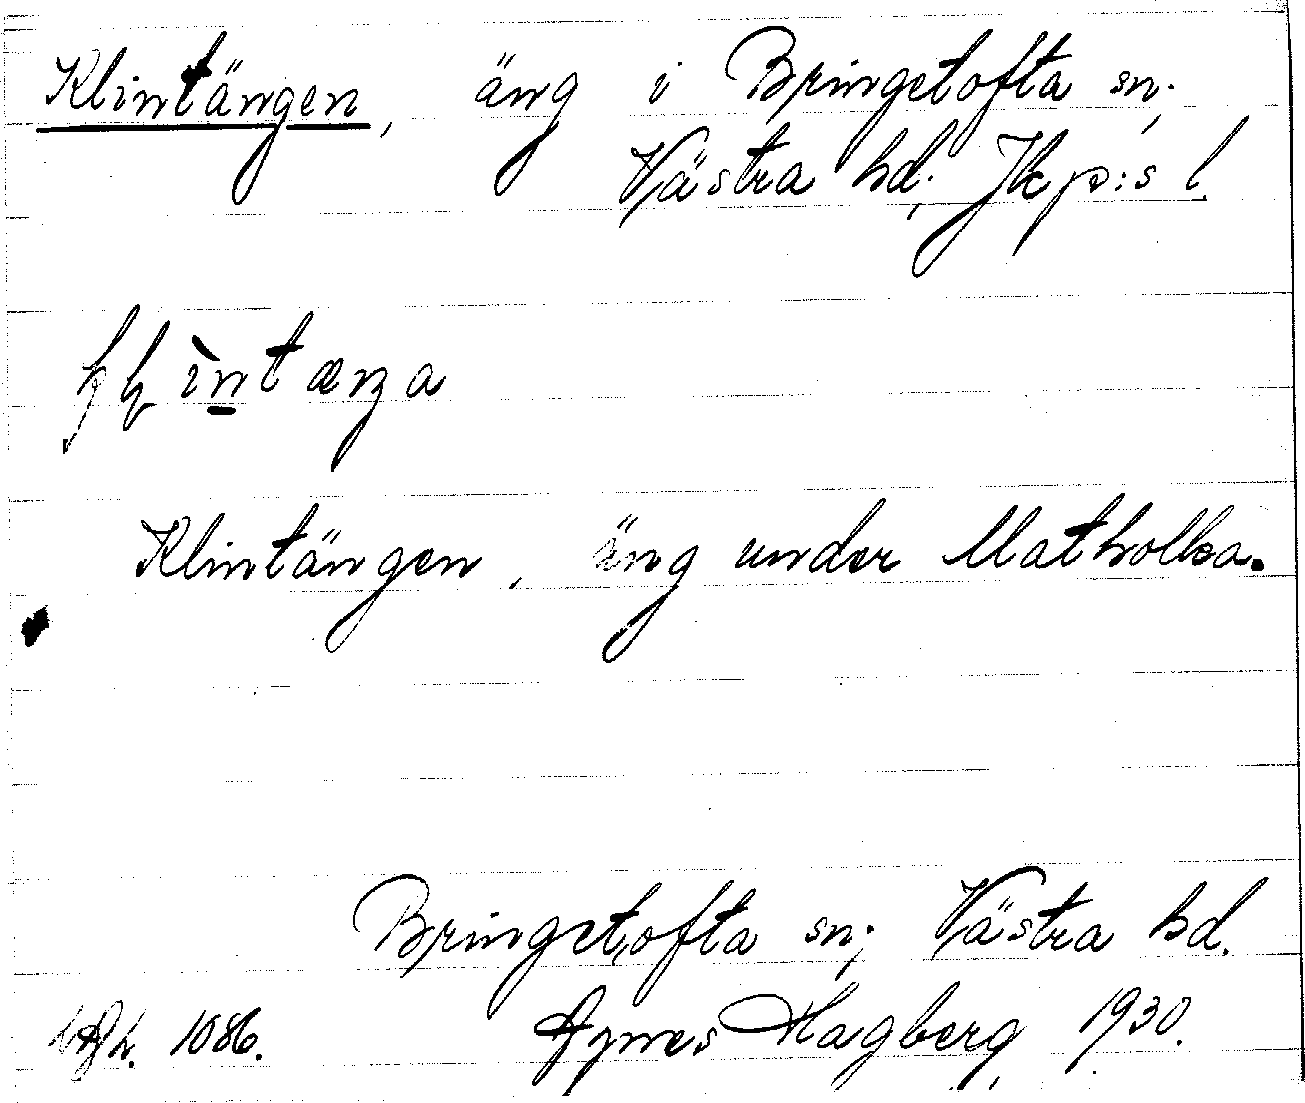 Klintängen, äng i Bringetofta sn;
Västra hd; Jkp:s l.
Klintängen, äng under Matholka.
Bringetofta sn; Västra hd.
1086. Agnes Hagberg, 1930.